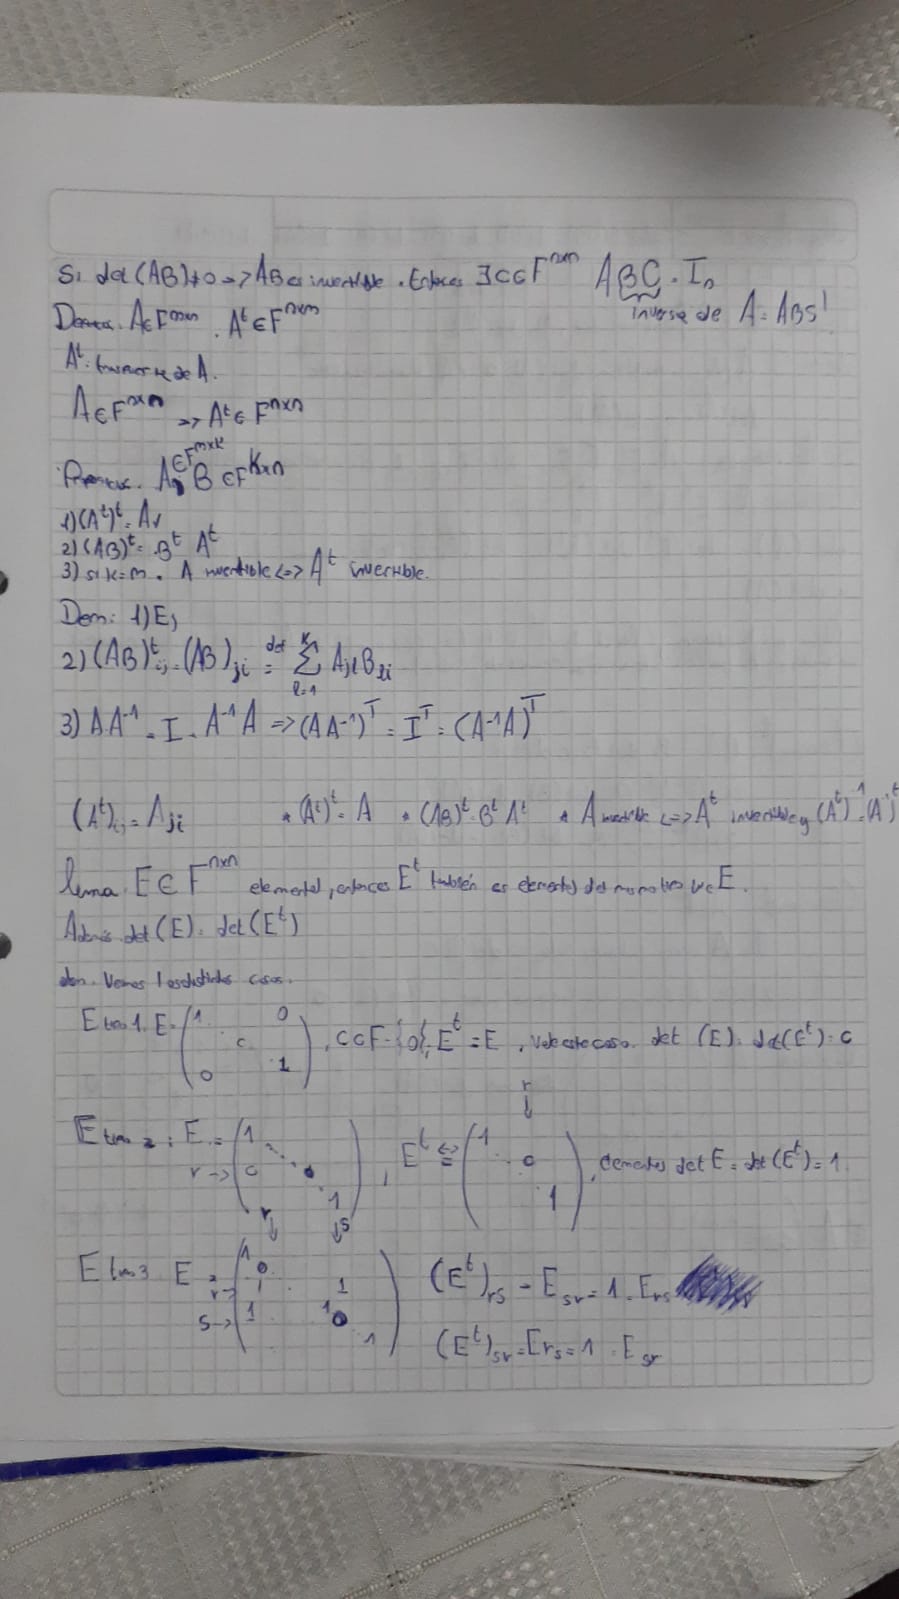 Si det (AB)≠0 => AB es invertible. Entonces ∃C∈F^{n×n} ABC = I_n
inversa de A = ABS!
A∈F^{m×n}. A^t∈F^{n×m}
A^t: de A.
A∈F^{n×n} => A^t∈F^{n×n}
A∈F^{m×k}, B∈F^{k×n}
1) (A^t)^t = A
2) (AB)^t = B^t A^t
3) si k=m. A invertible <=> A^t invertible.
Dem: 1) Ej
2) (AB)^t_{ij} = (AB)_{ji} =^{def} Σ_{l=1}^{k} A_{jl} B_{li}
3) AA^{-1} = I = A^{-1}A => (AA^{-1})^T = I^T = (A^{-1}A)^T
(A^t)_{ij} = A_{ji} * (A^t)^t = A * (AB)^t = B^t A^t * A invertible <=> A^t invertible y (A^t)^{-1} = (A^{-1})^t
Lema. E∈F^{n×n} elemental, entonces E^t también es elemental del mismo tipo que E.
Además det(E) = det(E^t)
dem. Vemos los distintos casos.
E tipo 1. E = ( 1 0 c 0 1 ), c∈F-{0}, E^t = E, en este caso det (E) = det(E^t) = c
r ↓
E tipo 2: E = ( 1 r→ c 1 ), E^t = ( 1 c 1 ), det E = det(E^t) = 1
r ↓ ↓ s
E tipo 3 E = ( 1 0 r→ 1 s→ 1 1 0 1 ) (E^t)_{rs} = E_{sr} = 1 = E_{rs}
(E^t)_{sr} = E_{rs} = 1 = E_{sr}